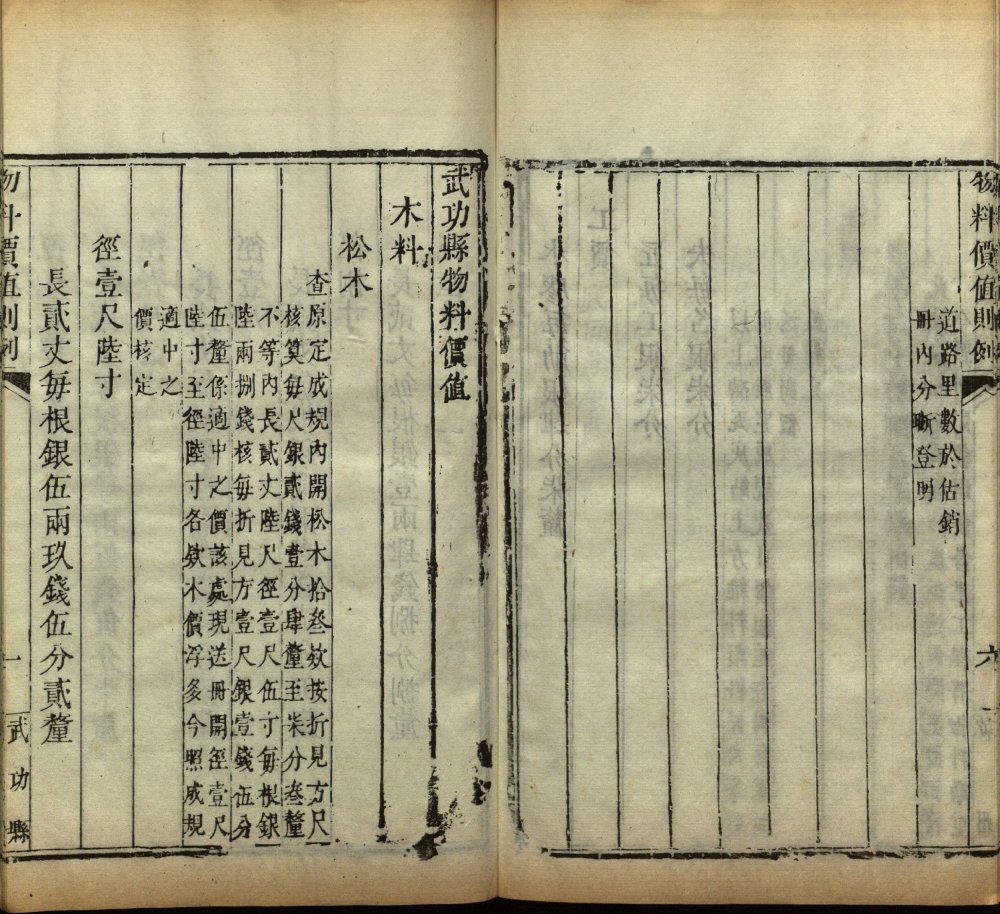 物料價值則例
道路里數於估銷
冊內分晰登明
六
武功縣物料價值
木料
松木
查原定成規內開松木拾叁欵按折見方尺
核算每尺銀貳錢壹分肆釐至柒分叁釐
不等內長貳丈陸尺徑壹尺伍寸每根銀
陸兩捌錢核每折見方壹尺銀壹錢伍分
伍釐係適中之價該處現送冊開徑壹尺
陸寸至徑陸寸各欵木價浮多今照成規
適中之
價核定
徑壹尺陸寸
長貳丈每根銀伍兩玖錢伍分貳釐
物料價值則例
一
武功縣